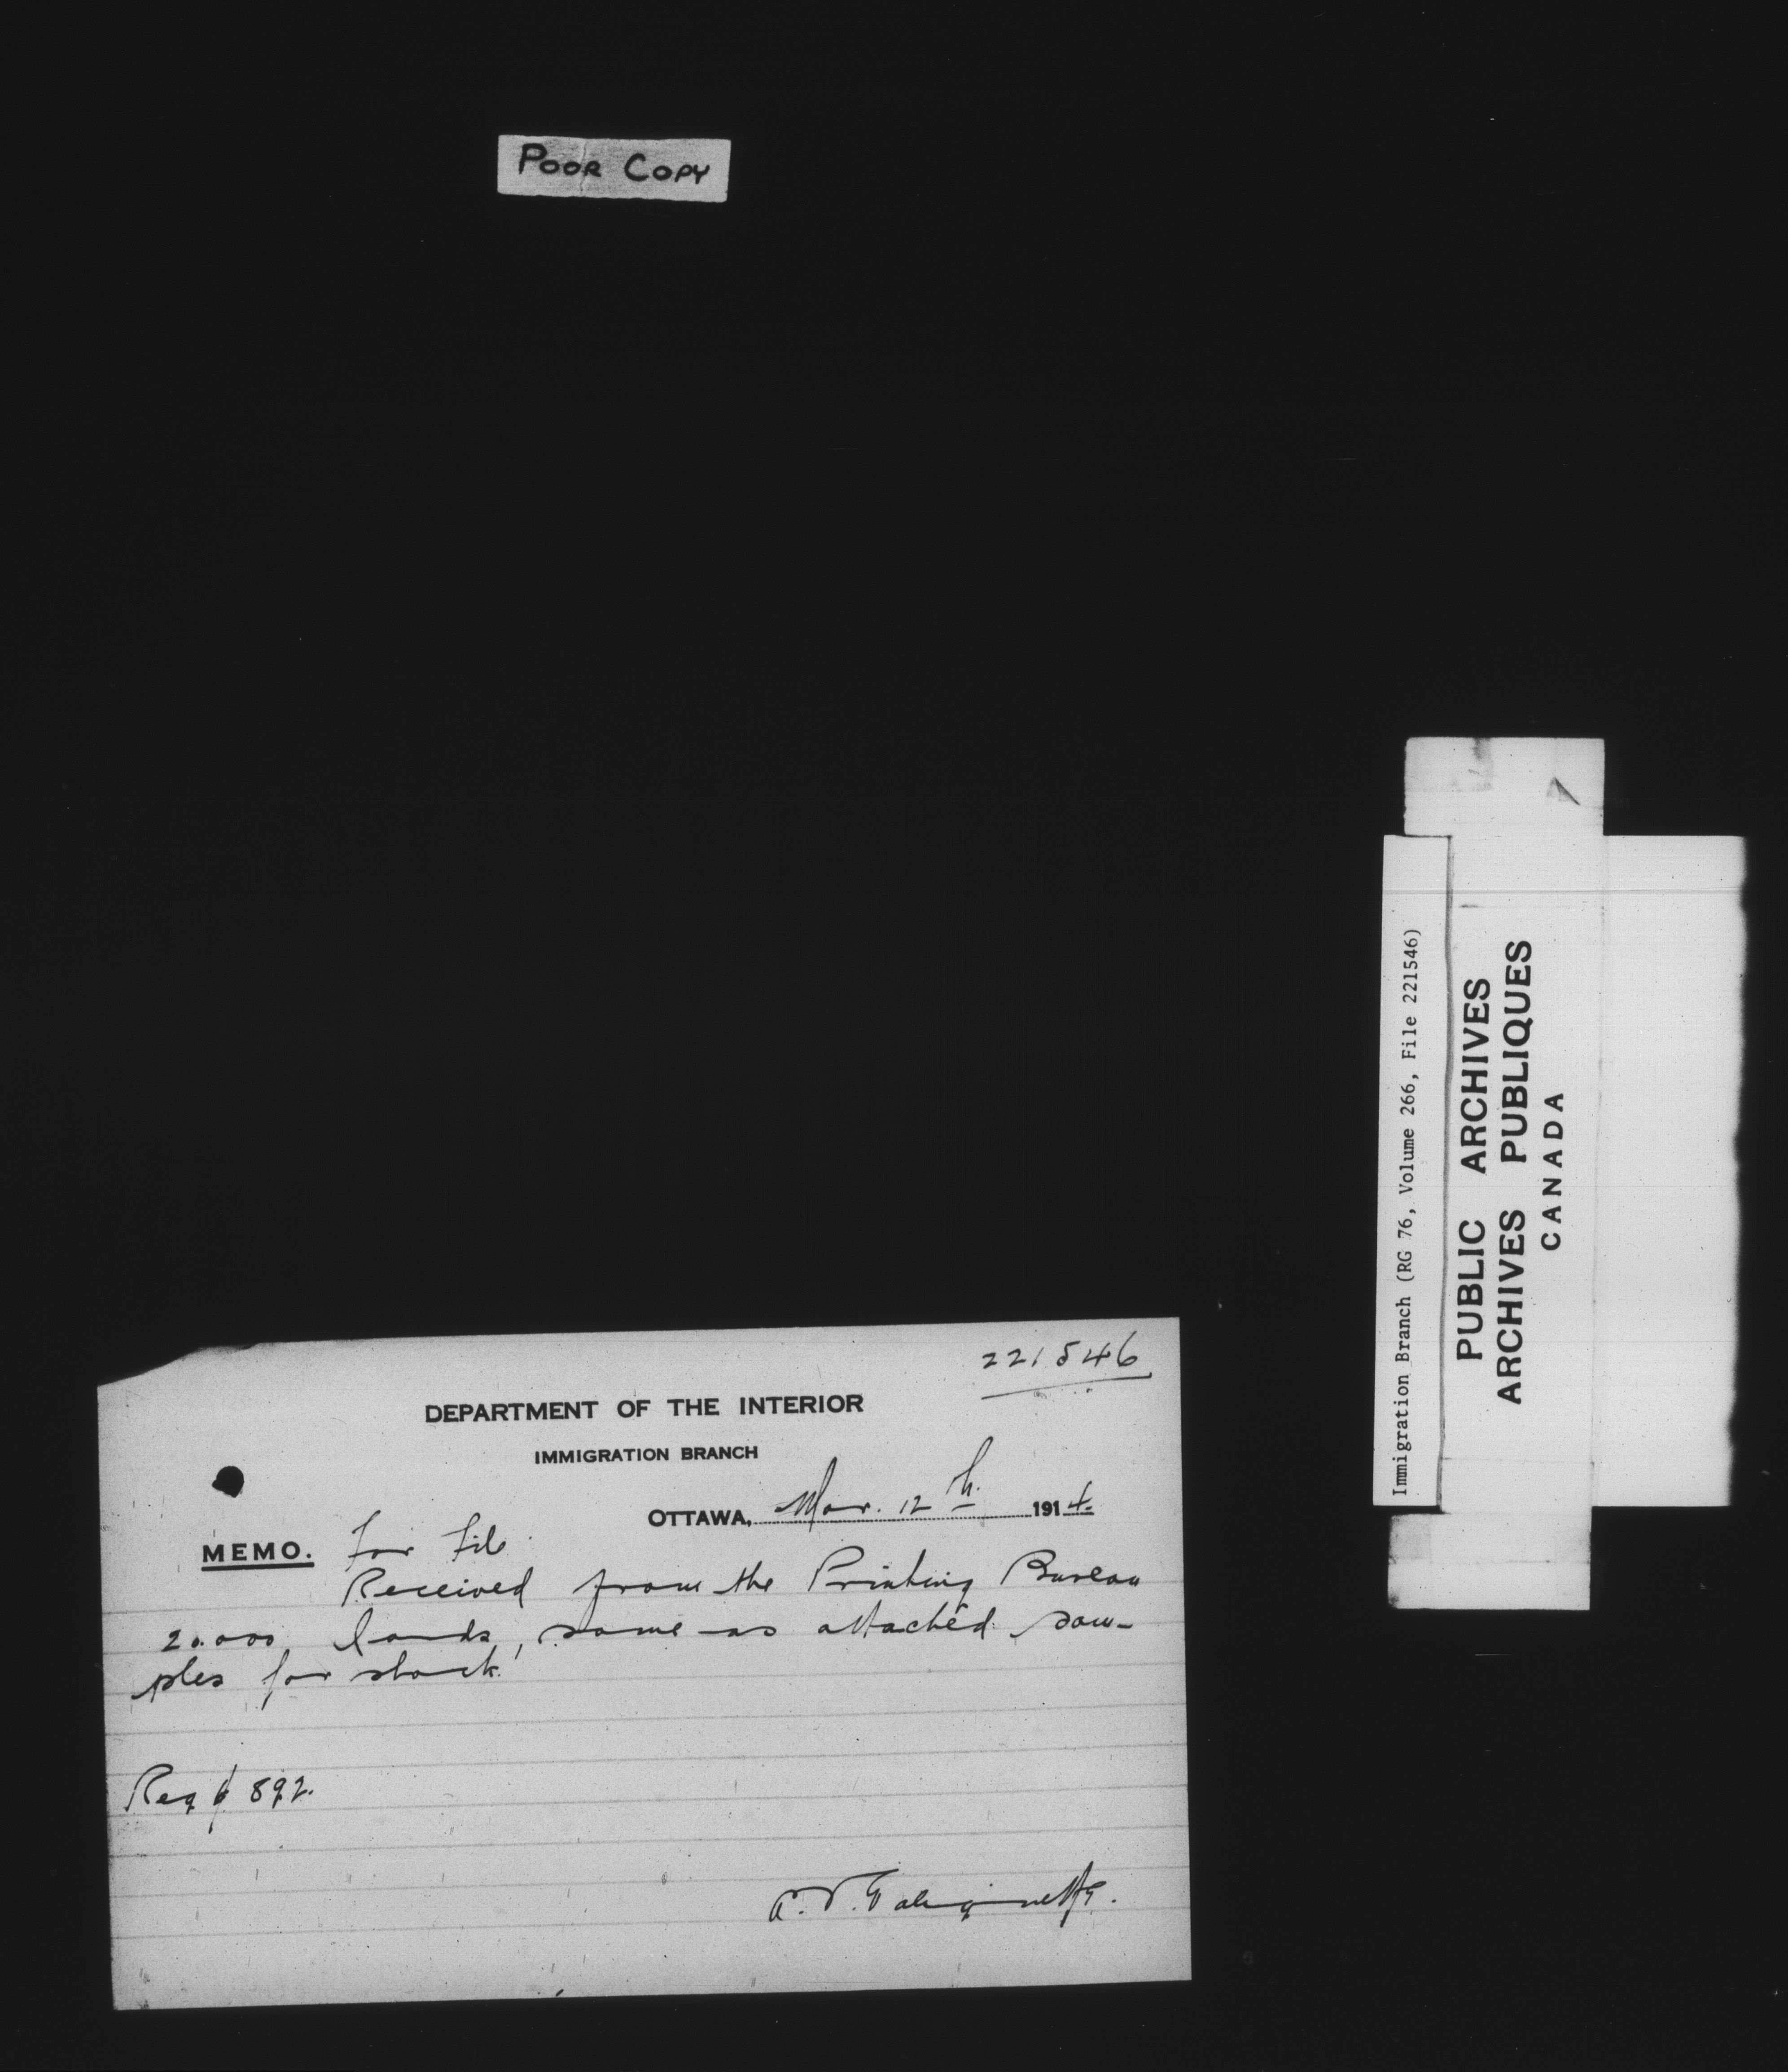 POOR COPY
221546
DEPARTMENT OF THE INTERIOR
IMMIGRATION BRANCH
OTTAWA, Mar. 12th. 1914.
MEMO. For File
Received from the Printing Bureau
20.000, same as attached sam-
ples for stock.
Req 892.
Immigration Branch (RG 76, Volume 266, File 221546)
PUBLIC ARCHIVES
ARCHIVES PUBLIQUES
CANADA